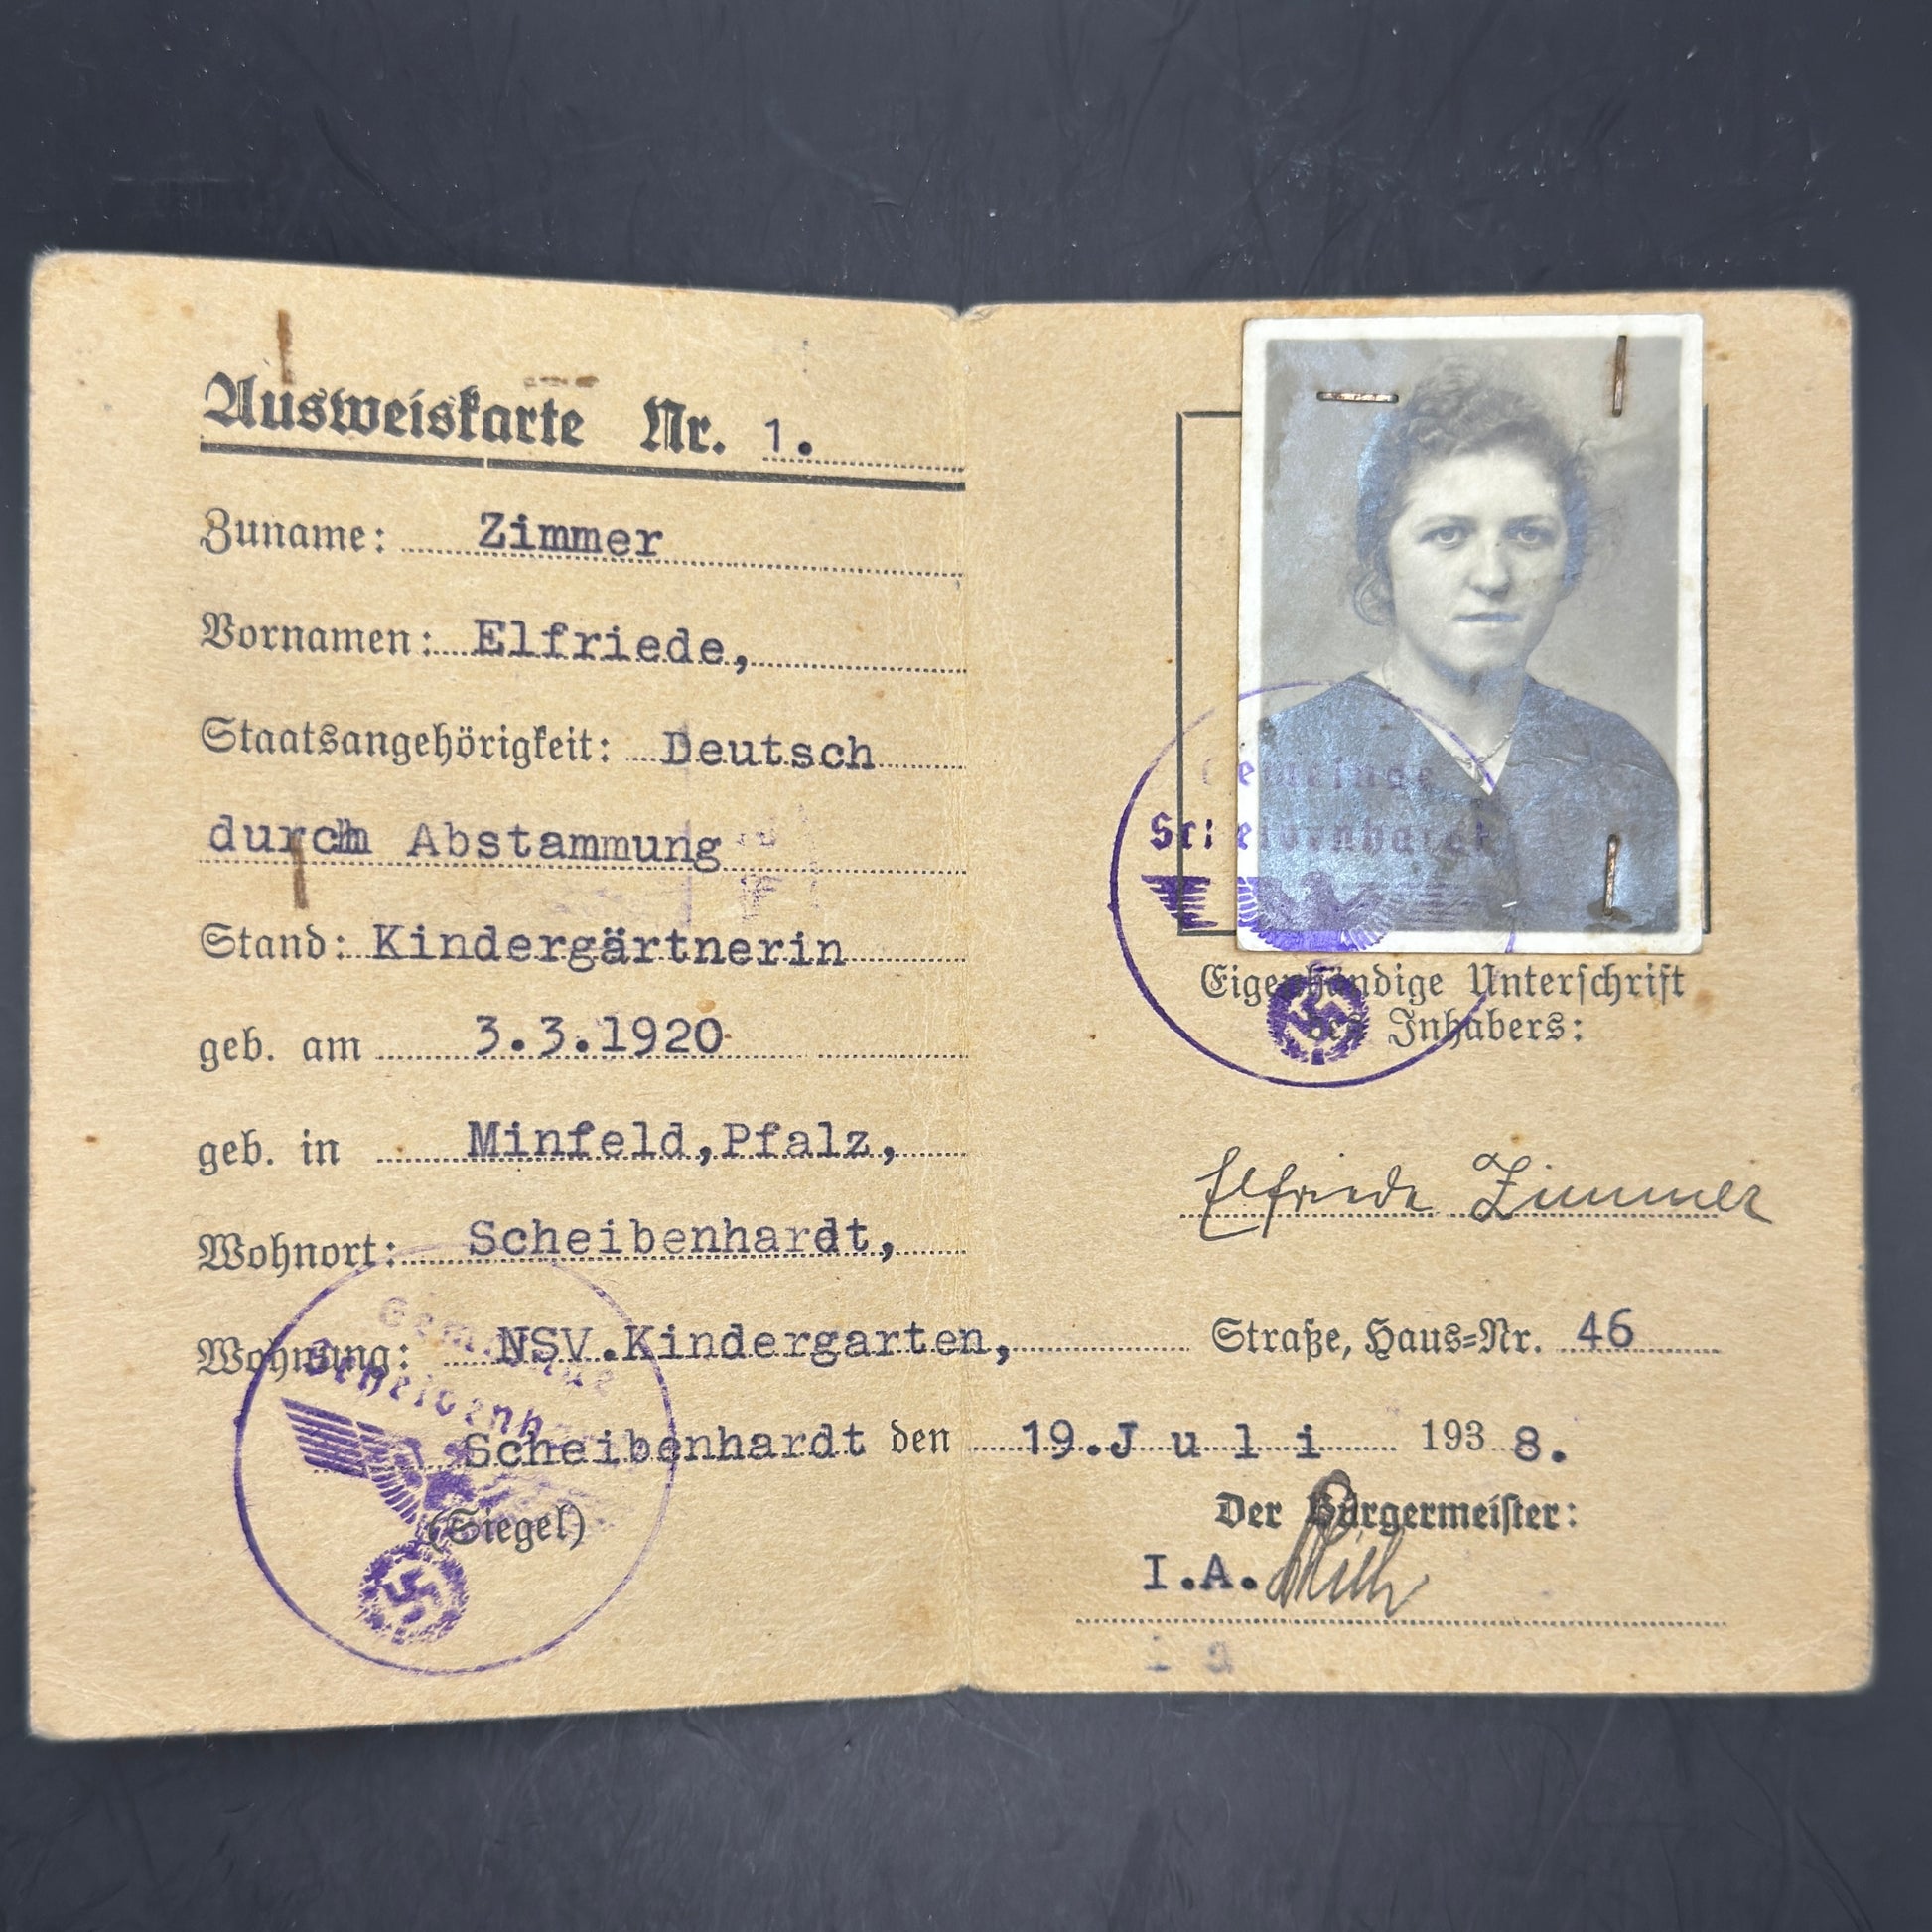 Ausweiskarte Nr. 1.
Zuname: Zimmer
Vornamen: Elfriede,
Staatsangehörigkeit: Deutsch
durch Abstammung
Stand: Kindergärtnerin
geb. am 3.3.1920
geb. in Minfeld,Pfalz,
Wohnort: Scheibenhardt,
Wohnung: NSV.Kindergarten, Straße, Haus=Nr. 46
Scheibenhardt den 19.Juli 1938.
(Siegel)
Gemeinde
Scheibenhardt
Gemeinde
Scheibenhardt
Eigenhändige Unterschrift
des Inhabers:
Elfriede Zimmer
Der Bürgermeister:
I.A.